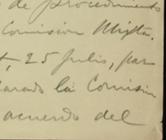 de procedimiento
Comisión Mixta.
25 Julio, par
la Comisión
acuerdo del